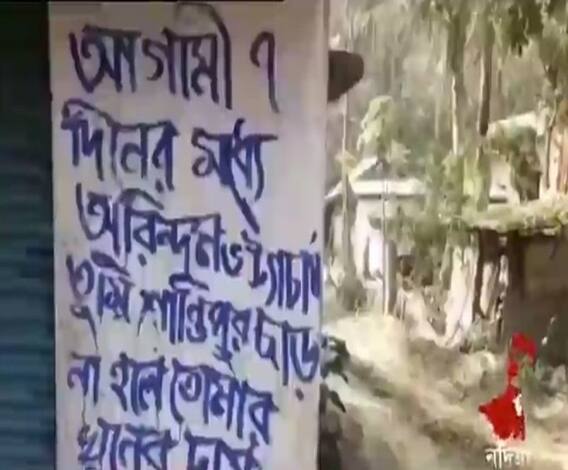 আগামী ৭
দিনের মধ্যে
অরিন্দম ভট্টাচার্য
তুমি শান্তিপুর ছাড়
না হলে তোমার
খুনের দায়
নদিয়া